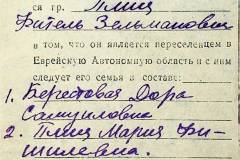 ся гр. Плищ
Фитель Зельманович
в том, что он является переселенцем в
Еврейскую Автономную область и с ним
следует его семья в составе:
1. Берестовая Дора
Самуиловна
2. Плищ Мария Фи-
шилевна.